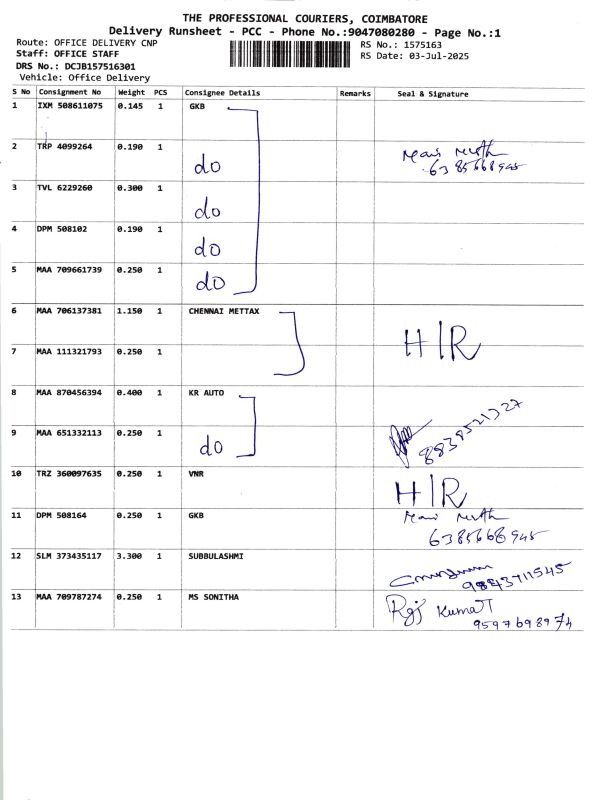 THE PROFESSIONAL COURIERS, COIMBATORE
Delivery Runsheet - PCC - Phone No.:9047080280 - Page No.:1
Route: OFFICE DELIVERY CNP
Staff: OFFICE STAFF
DRS No.: DCJB157516301
Vehicle: Office Delivery
RS No.: 1575163
RS Date: 03-Jul-2025
S No Consignment No Weight PCS Consignee Details Remarks Seal & Signature
1 IXM 508611075 0.145 1 GKB
2 TRP 4099264 0.190 1 do
6385668945
3 TVL 6229260 0.300 1 do
4 DPM 508102 0.190 1 do
5 MAA 709661739 0.250 1 do
6 MAA 706137381 1.150 1 CHENNAI METTAX
H/R
7 MAA 111321793 0.250 1
8 MAA 870456394 0.400 1 KR AUTO
9 MAA 651332113 0.250 1 do
10 TRZ 360097635 0.250 1 VNR H/R
11 DPM 508164 0.250 1 GKB
6385668945
12 SLM 373435117 3.300 1 SUBBULASHMI
9843711545
13 MAA 709787274 0.250 1 MS SONITHA Raj Kumar
9597698974